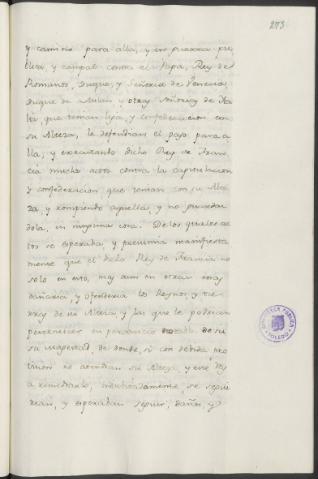 273
y camino para alla, y no pudiera pre
y campal contra el Papa, Rey de
Romanos, Duque, y Señoria de Venecia,
Duque de Milan y otros Señores de Ita
lia que tenian liga, y confederacion con
su Alteza, le defendian el paso para a
lla, y executando dicho Rey de Fran
cia mucho actos contra la capitulacion
y confederacion que tenian con su Alte
za, y rompiendo aquella, y no guardan
dola, en ninguna cosa. De los quales ac
tos se esperaba, y presumia manifiesta
mente que el dicho Rey de Francia no
solo en esto, mas aun en otras cosas
dañaria, y ofenderia los Reynos, y tie
rras de su Alteza y las que le podrian
pertenecer en su
sa magestad, de donde, si con debida pro
vision no acordian su Alteza,
a remediarlo, se sigui
rian, y esperaban seguir, daños, y
BIBLIOTECA PUBLICA
TOLEDO